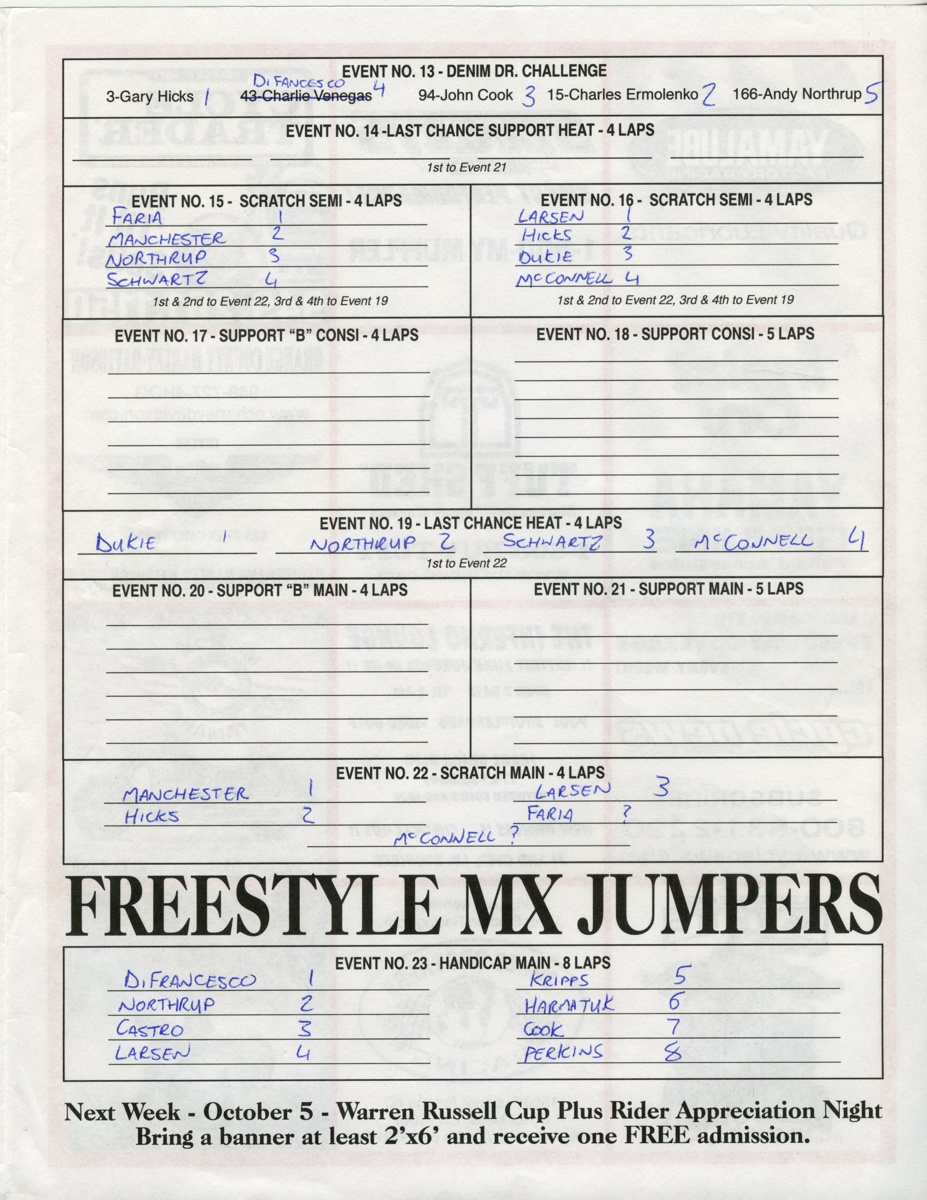 EVENT NO. 13 - DENIM DR. CHALLENGE
DiFANCESCO
3-Gary Hicks 1 43-Charlie Venegas 4 94-John Cook 3 15-Charles Ermolenko 2 166-Andy Northrup 5
EVENT NO. 14 -LAST CHANCE SUPPORT HEAT - 4 LAPS
1st to Event 21
EVENT NO. 15 - SCRATCH SEMI - 4 LAPS
FARIA 1
MANCHESTER 2
NORTHRUP 3
SCHWARTZ 4
1st & 2nd to Event 22, 3rd & 4th to Event 19
EVENT NO. 16 - SCRATCH SEMI - 4 LAPS
LARSEN 1
HICKS 2
DUKIE 3
McCONNELL 4
1st & 2nd to Event 22, 3rd & 4th to Event 19
EVENT NO. 17 - SUPPORT “B” CONSI - 4 LAPS
EVENT NO. 18 - SUPPORT CONSI - 5 LAPS
EVENT NO. 19 - LAST CHANCE HEAT - 4 LAPS
DUKIE 1 NORTHRUP 2 SCHWARTZ 3 McCONNELL 4
1st to Event 22
EVENT NO. 20 - SUPPORT “B” MAIN - 4 LAPS
EVENT NO. 21 - SUPPORT MAIN - 5 LAPS
EVENT NO. 22 - SCRATCH MAIN - 4 LAPS
MANCHESTER 1 LARSEN 3
HICKS 2 FARIA ?
McCONNELL ?
FREESTYLE MX JUMPERS
EVENT NO. 23 - HANDICAP MAIN - 8 LAPS
DiFRANCESCO 1 KRIPPS 5
NORTHRUP 2 HARMATUK 6
CASTRO 3 COOK 7
LARSEN 4 PERKINS 8
Next Week - October 5 - Warren Russell Cup Plus Rider Appreciation Night
Bring a banner at least 2’x6’ and receive one FREE admission.